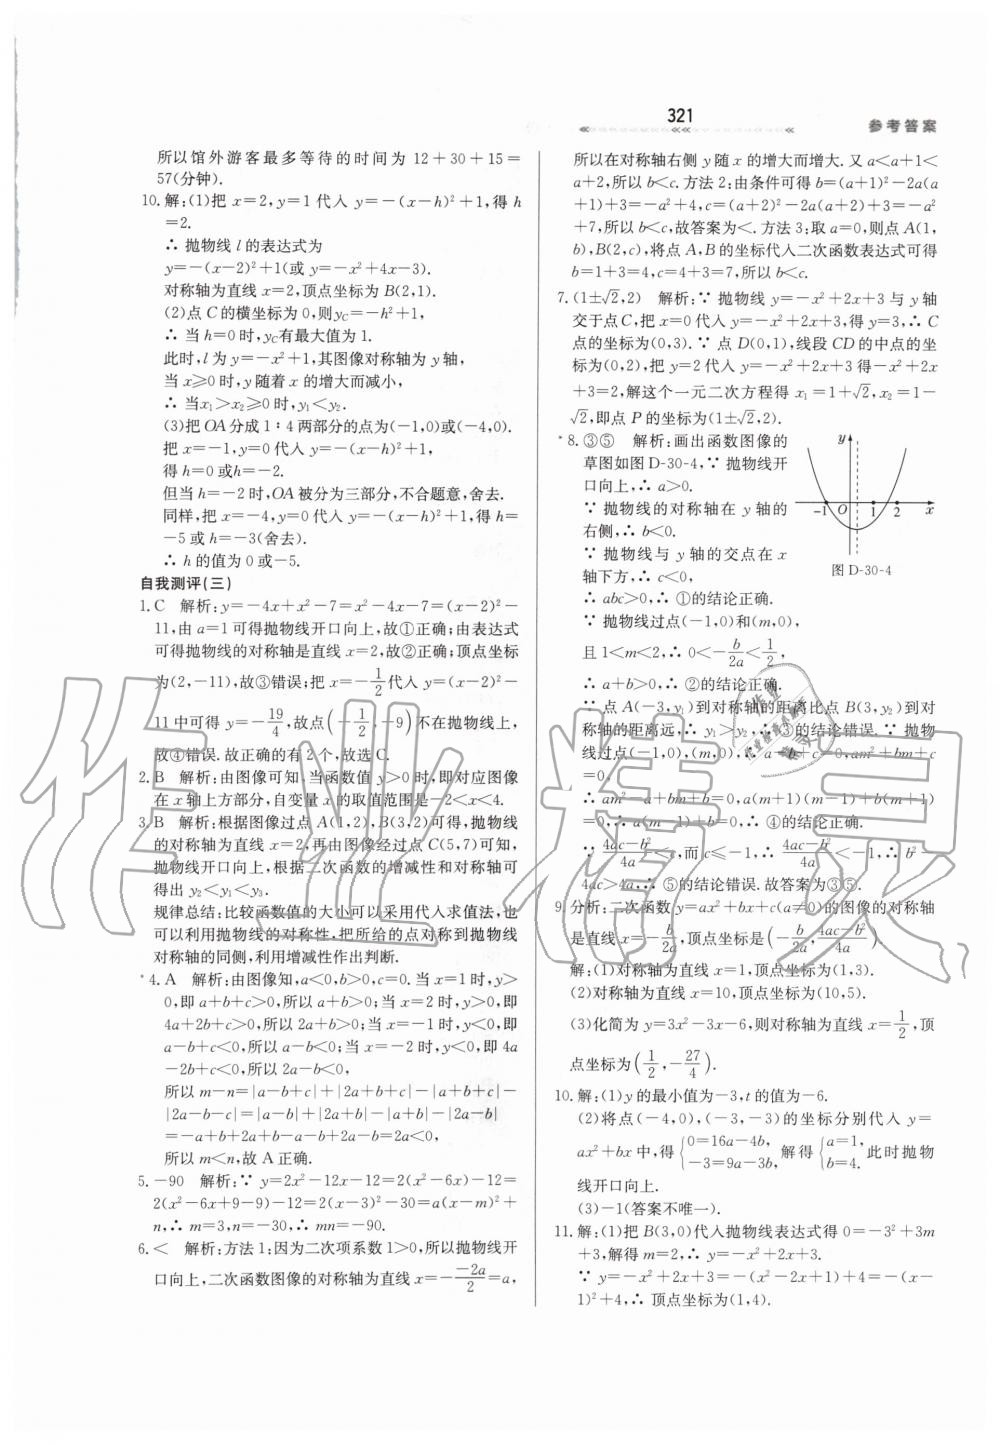 321
参考答案
所以馆外游客最多等待的时间为 12+30+15=
57(分钟).
10. 解:(1)把 x=2,y=1 代入 y=-(x-h)²+1,得 h
=2.
∴ 抛物线 l 的表达式为
y=-(x-2)²+1(或 y=-x²+4x-3).
对称轴为直线 x=2,顶点坐标为 B(2,1).
(2)点 C 的横坐标为 0,则 y_C=-h²+1,
∴ 当 h=0 时,y_C有最大值为 1.
此时,l 为 y=-x²+1,其图像对称轴为 y 轴,
当 x≥0 时,y 随着 x 的增大而减小,
∴ 当x₁>x₂≥0 时,y₁<y₂.
(3)把 OA 分成 1∶4 两部分的点为(-1,0)或(-4,0).
把 x=-1,y=0 代入 y=-(x-h)²+1,
得 h=0 或h=-2.
但当 h=-2 时,OA 被分为三部分,不合题意,舍去.
同样,把 x=-4,y=0 代入 y=-(x-h)²+1,得 h=
-5 或 h=-3(舍去).
∴ h 的值为 0 或-5.
自我测评(三)
1. C 解析:y=-4x+x²-7=x²-4x-7=(x-2)²-
11,由 a=1 可得抛物线开口向上,故①正确;由表达式
可得抛物线的对称轴是直线 x=2,故②正确;顶点坐标
为(2,-11),故③错误;把 x=-1/2代入 y=(x-2)²-
11 中可得 y=-19/4,故点(-1/2,-9)不在抛物线上,
故④错误.故正确的有 2 个.故选 C.
2. B 解析:由图像可知,当函数值 y>0 时,即对应图像
在 x 轴上方部分,自变量 x 的取值范围是-2<x<4.
3. B 解析:根据图像过点 A(1,2),B(3,2)可得,抛物线
的对称轴为直线 x=2,再由图像经过点 C(5,7)可知,
抛物线开口向上,根据二次函数的增减性和对称轴可
得出 y₂<y₁<y₃.
规律总结:比较函数值的大小可以采用代入求值法,也
可以利用抛物线的对称性,把所给的点对称到抛物线
对称轴的同侧,利用增减性作出判断.
*4. A 解析:由图像知,a<0,b>0,c=0.当 x=1 时,y>
0,即 a+b+c>0,所以 a+b>0;当 x=2 时,y>0,即
4a+2b+c>0,所以 2a+b>0;当 x=-1 时,y<0,即
a-b+c<0,所以 a-b<0;当 x=-2 时,y<0,即 4a
-2b+c<0,所以 2a-b<0,
所以 m-n=|a-b+c|+|2a+b+c|-|a+b+c|-
|2a-b-c|=|a-b|+|2a+b|-|a+b|-|2a-b|
=-a+b+2a+b-a-b+2a-b=2a<0,
所以 m<n,故 A 正确.
5. -90 解析:∵ y=2x²-12x-12=2(x²-6x)-12=
2(x²-6x+9-9)-12=2(x-3)²-30=a(x-m)²+
n,∴ m=3,n=-30,∴ mn=-90.
6. < 解析:方法 1:因为二次项系数 1>0,所以抛物线开
口向上,二次函数图像的对称轴为直线 x=-(-2a)/2=a,
所以在对称轴右侧 y 随 x 的增大而增大.又 a<a+1<
a+2,所以 b<c.方法 2:由条件可得 b=(a+1)²-2a(a
+1)+3=-a²+4,c=(a+2)²-2a(a+2)+3=-a²
+7,所以 b<c,故答案为<.方法 3:取 a=0,则点 A(1,
b),B(2,c),将点 A,B 的坐标代入二次函数表达式可得
b=1+3=4,c=4+3=7,所以 b<c.
7. (1±√2,2) 解析:∵ 抛物线 y=-x²+2x+3 与 y 轴
交于点 C,把 x=0 代入 y=-x²+2x+3,得 y=3,∴ C
点的坐标为(0,3).∵ 点 D(0,1),线段 CD 的中点的坐
标为(0,2),把 y=2 代入 y=-x²+2x+3 得-x²+2x
+3=2,解这个一元二次方程得 x₁=1+√2,x₂=1-
√2,即点 P 的坐标为(1±√2,2).
*8. ③⑤ 解析:画出函数图像的
草图如图 D-30-4,∵ 抛物线开
口向上,∴ a>0.
∵ 抛物线的对称轴在 y 轴的
右侧,∴ b<0.
∵ 抛物线与 y 轴的交点在 x
轴下方,∴ c<0,
∴ abc>0,∴ ①的结论正确.
∵ 抛物线过点(-1,0)和(m,0),
且 1<m<2,∴ 0<-b/2a<1/2,
∴ a+b>0,∴ ②的结论正确.
∵ 点 A(-3,y₁)到对称轴的距离比点 B(3,y₂)到对
称轴的距离远,∴ y₁>y₂,∴ ③的结论错误.∵ 抛物
线过点(-1,0),(m,0),∴ a-b+c=0,am²+bm+c
=0,
∴ am²-a+bm+b=0,a(m+1)(m-1)+b(m+1)=
0,∴ a(m-1)+b=0,∴ ④的结论正确.
∵ (4ac-b²)/4a<c,而 c≤-1,∴ (4ac-b²)/4a<-1,∴ b²-
4ac>4a,∴ ⑤的结论错误.故答案为③⑤.
y
-1 O 1 2 x
图 D-30-4
9. 分析:二次函数 y=ax²+bx+c(a≠0)的图像的对称轴
是直线 x=-b/2a,顶点坐标是(-b/2a,(4ac-b²)/4a).
解:(1)对称轴为直线 x=1,顶点坐标为(1,3).
(2)对称轴为直线 x=10,顶点坐标为(10,5).
(3)化简为 y=3x²-3x-6,则对称轴为直线 x=1/2,顶
点坐标为(1/2,-27/4).
10. 解:(1)y 的最小值为-3,t 的值为-6.
(2)将点(-4,0),(-3,-3)的坐标分别代入 y=
ax²+bx 中,得{0=16a-4b, -3=9a-3b, 解得{a=1, b=4. 此时抛物
线开口向上.
(3)-1(答案不唯一).
11. 解:(1)把 B(3,0)代入抛物线表达式得 0=-3²+3m
+3,解得 m=2,∴ y=-x²+2x+3.
∵ y=-x²+2x+3=-(x²-2x+1)+4=-(x-
1)²+4,∴ 顶点坐标为(1,4).
作业精灵